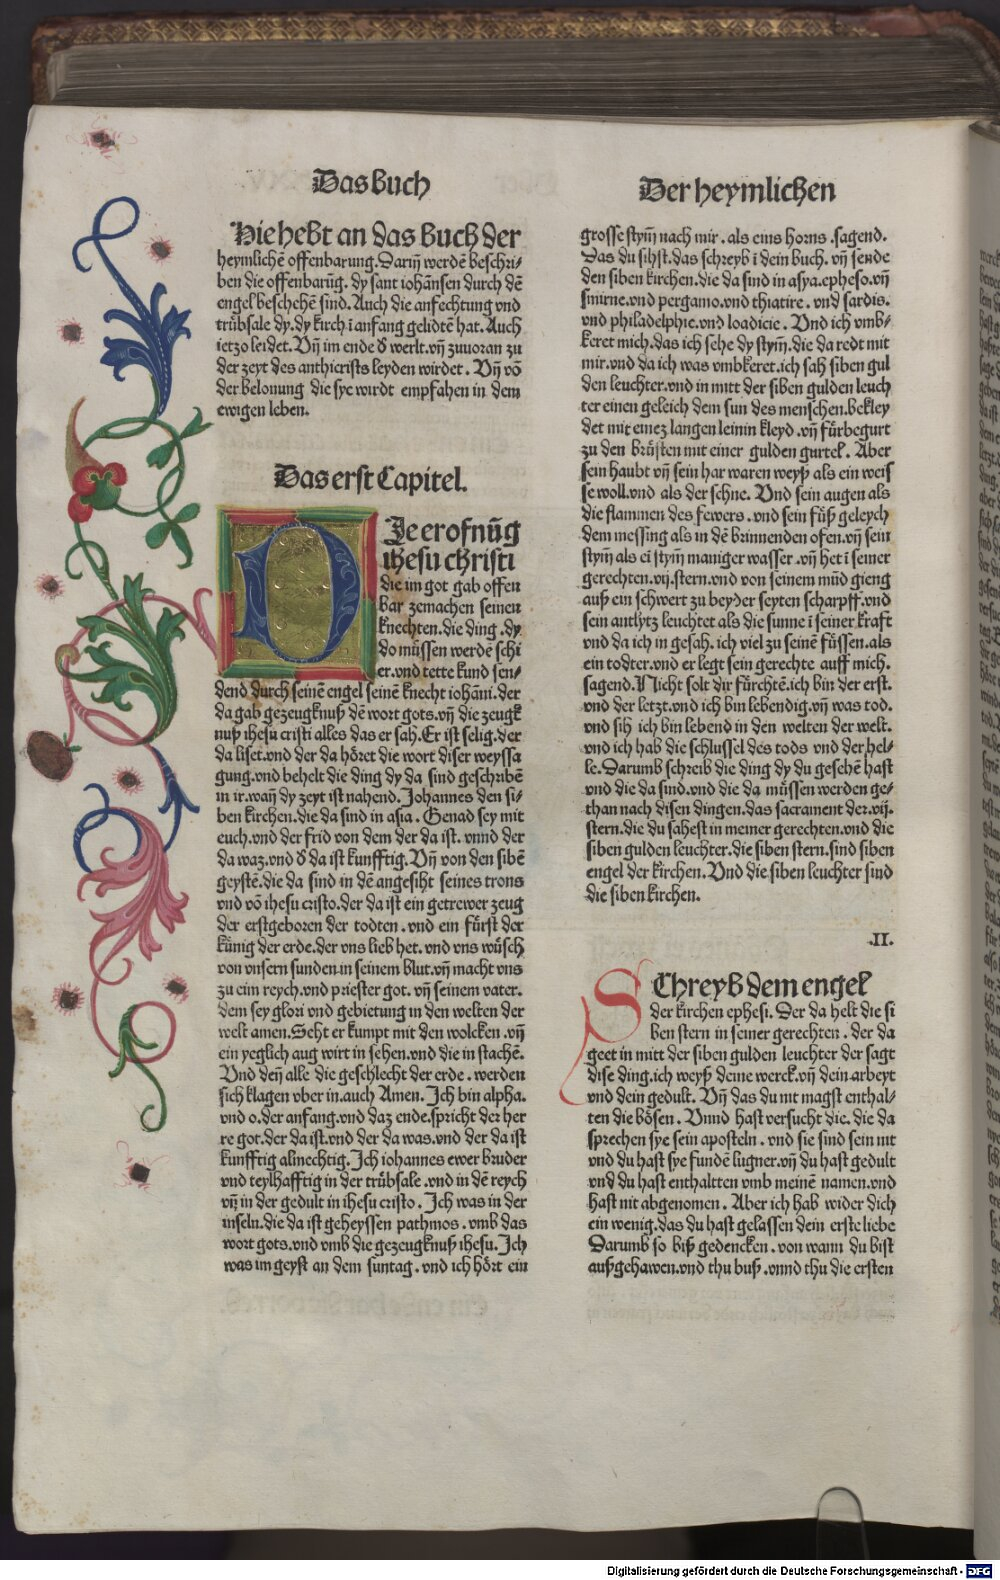 Das Buch
Der heymlichen
Hie hebt an das Buch der
heymlichē offenbarung. Dariñ werdē beschri-
ben die offenbarūg. dy sant iohānsen durch dē
engel beschehē sind. Auch die anfechtung vnd
trübsale dy. dy kirch ī anfang gelidtē hat. Auch
ietzo leidet. Vñ im ende d werlt. vñ zuuoran zu
der zeyt des anthicrists leyden wirdet. Vñ vō
der belonung die sye wirdt empfahen in dem
ewigen leben.
Das erst Capitel.
DIe erofnūg
ihesu christi
die im got gab offen
bar zemachen seinen
knechten. die ding. dy
do müssen werdē schi
er. vnd tette kund sen-
dend durch seinē engel seinē knecht iohāni. der
da gab gezeugknuß dē wort gots. vñ die zeugk
nuß ihesu cristi alles das er sah. Er ist selig. der
da liset. vnd der da höret die wort diser weyssa
gung. vnd behelt die ding dy da sind geschribē
in ir. wañ dy zeyt ist nahend. Johannes den si-
ben kirchen. die da sind in asia. Genad sey mit
euch. vnd der frid von dem der da ist. vnnd der
da waz. vnd d da ist kunfftig. Vñ von den sibē
geystē. die da sind in dē angesiht seines trons
vnd vō ihesu cristo. der da ist ein getrewer zeug
der erstgeboren der todten. vnd ein fürst der
künig der erde. der vns lieb het. vnd vns wüsch
von vnsern sunden in seinem blut. vñ macht vns
zu eim reych. vnd priester got. vñ seinem vater.
dem sey glori vnd gebietung in den welten der
welt amen. Seht er kumpt mit den wolcken. vñ
ein yeglich aug wirt in sehen. vnd die in stachē.
Vnd deñ alle die geschlecht der erde. werden
sich klagen vber in. auch Amen. Jch bin alpha.
vnd o. der anfang. vnd daz ende. spricht der her
re got. der da ist. vnd der da was. vnd der da ist
kunfftig almechtig. Jch iohannes ewer bruder
vnd teylhafftig in der trübsale. vnd in dē reych
vñ in der gedult in ihesu cristo. Jch was in der
inseln. die da ist geheyssen pathmos. vmb das
wort gots. vnd vmb die gezeugknuß ihesu. Jch
was im geyst an dem suntag. vnd ich hört ein
grosse stym̃ nach mir. als eins horns. sagend.
Das du sihst. das schreyb ī dein buch. vñ sende
den siben kirchen. die da sind in asya. epheso. vñ
smirne. vnd pergamo. vnd thiatire. vnd sardis.
vnd philadelphie. vnd loadicie. Vnd ich vmb-
keret mich. das ich sehe dy stym̃. die da redt mit
mir. vnd da ich was vmbkeret. ich sah siben gul
den leuchter. vnd in mitt der siben gulden leuch
ter einen geleich dem sun des menschen. bekley
det mit einez langen leinin kleyd. vñ fürbegurt
zu den brüsten mit einer gulden gurtel. Aber
sein haubt vñ sein har waren weyß als ein weis
se woll. vnd als der schne. Vnd sein augen als
die flammen des fewers. vnd sein füß geleych
dem messing als in dē brinnenden ofen. vñ sein
stym̃ als ei stym̃ maniger wasser. vñ het ī seiner
gerechten. vij. stern. vnd von seinem mūd gieng
auß ein schwert zu beyder seyten scharpff. vnd
sein antlytz leuchtet als die sunne ī seiner kraft
vnd da ich in gesah. ich viel zu seinē füssen. als
ein todter. vnd er legt sein gerechte auff mich.
sagend. Nicht solt dir fürchtē. ich bin der erst.
vnd der letzt. vnd ich bin lebendig. vñ was tod.
vnd sih ich bin lebend in den welten der welt.
vnd ich hab die schlussel des tods vnd der hel-
le. Darumb schreib die ding dy du gesehē hast
vnd die da sind. vnd die da müssen werden ge-
than nach disen dingen. das sacrament der. vij.
stern. die du sahest in meiner gerechten. vnd die
siben gulden leuchter. die siben stern. sind siben
engel der kirchen. Vnd die siben leuchter sind
die siben kirchen.
.II.
SChreyb dem engel
der kirchen ephesi. Der da helt die si
ben stern in seiner gerechten. der da
geet in mitt der siben gulden leuchter der sagt
dise ding. ich weyß deine werck. vñ dein arbeyt
vnd dein gedult. Vñ das du nit magst enthal-
ten die bösen. Vnnd hast versucht die. die da
sprechen sye sein aposteln. vnd sie sind sein nit
vnd du hast sye fundē lugner. vñ du hast gedult
vnd du hast enthaltten vmb meinē namen. vnd
hast nit abgenomen. Aber ich hab wider dich
ein wenig. das du hast gelassen dein erste liebe
Darumb so biß gedencken. von wann du bist
außgehawen. vnd thu buß. vnnd thu die ersten
Digitalisierung gefördert durch die Deutsche Forschungsgemeinschaft - DFG